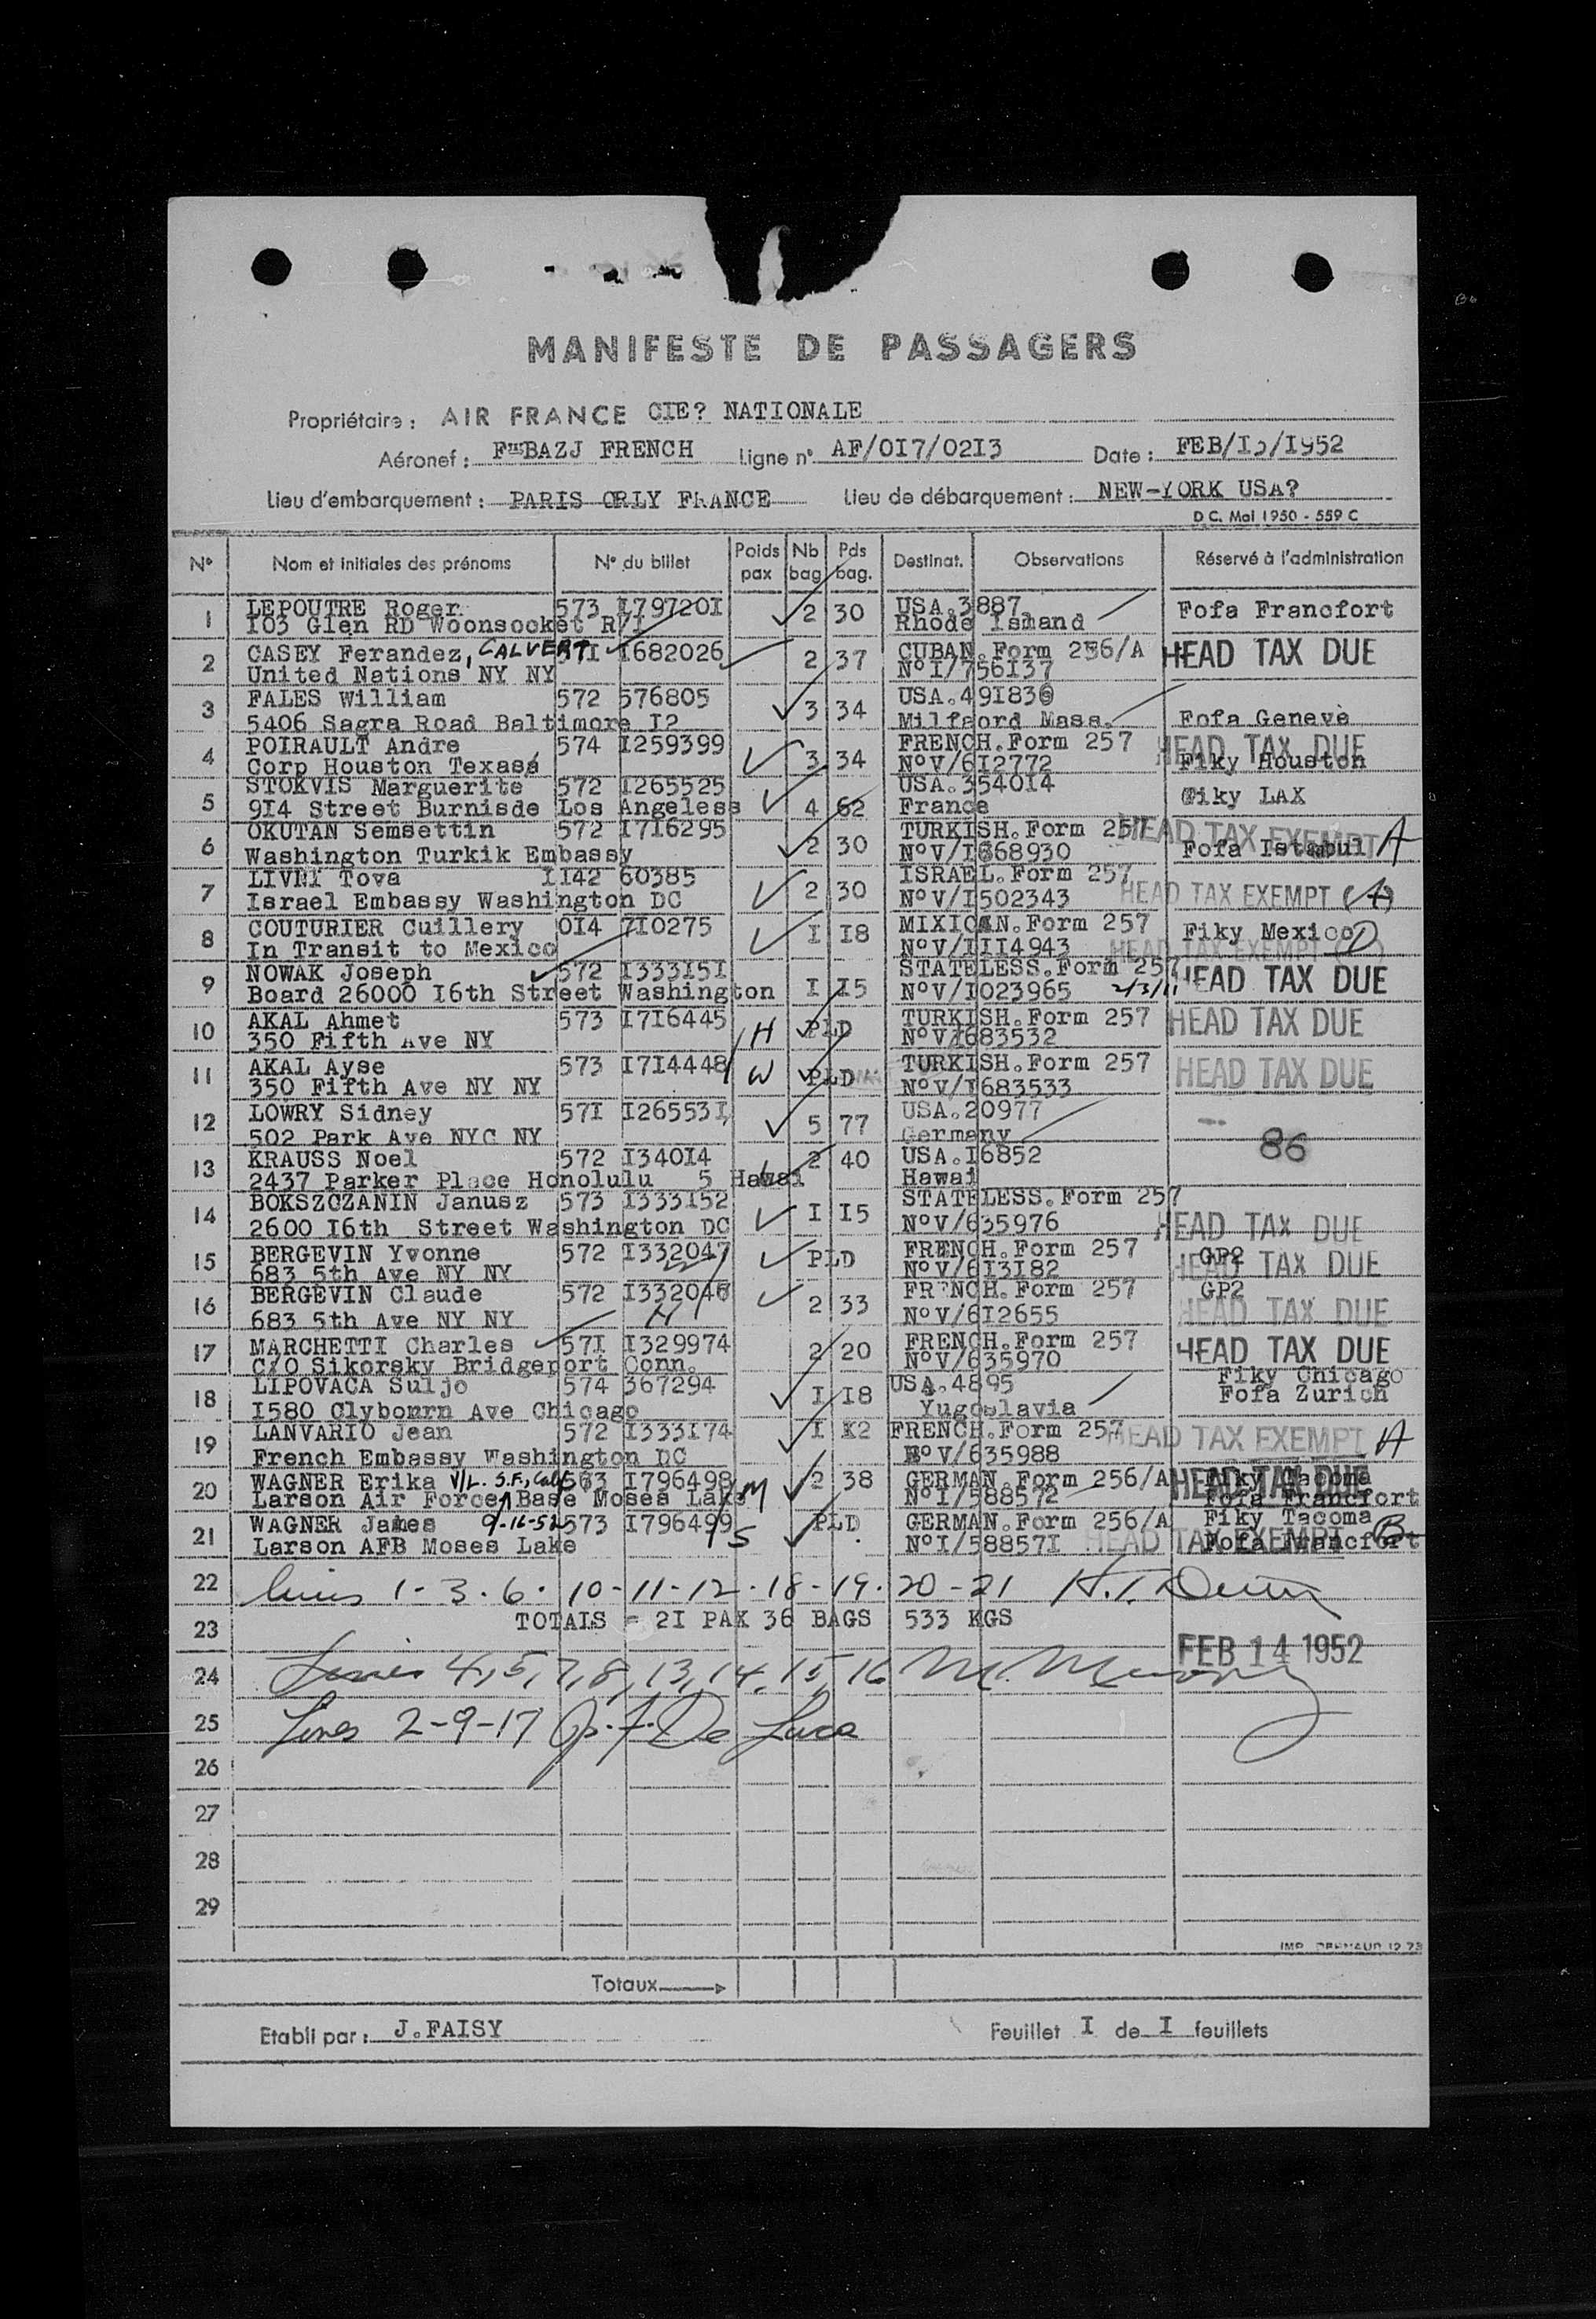 MANIFESTE DE PASSAGERS
Propriétaire : AIR FRANCE CIE? NATIONALE
Aéronef : F BAZJ FRENCH Ligne n° AF/0I7/02I3 Date : FEB/I3/I952
Lieu d'embarquement : PARIS ORLY FRANCE Lieu de débarquement : NEW-YORK USA?
D C. Mai 1950 - 559 C
N° Nom et initiales des prénoms N° du billet Poids pax Nb bag Pds bag. Destinat. Observations Réservé à l'administration
1 LEPOUTRE Roger 573 I79720I 2 30 USA.3887 Fofa Francfort
I03 Glen RD Woonsocket R/I Rhode Ismand
2 CASEY Ferandez, CALVERT 57I I682026 2 37 CUBAN.Form 256/A HEAD TAX DUE
United Nations NY NY N°I/756I37
3 FALES William 572 576805 3 34 USA.49I836 Fofa Genevè
5406 Sagra Road Baltimore I2 Milfaord Mass.
4 POIRAULT Andre 574 I259399 3 34 FRENCH.Form 257 HEAD TAX DUE
Corp Houston Texasa N°V/6I2772 Fiky Houston
5 STOKVIS Marguerite 572 I265525 4 62 USA.3540I4 Fiky LAX
9I4 Street Burnisde Los Angeless France
6 OKUTAN Semsettin 572 I7I6295 2 30 TURKISH.Form 257 HEAD TAX EXEMPT A
Washington Turkik Embassy N°V/I668930 Fofa Istambul
7 LIVNI Tova II42 60385 2 30 ISRAEL.Form 257 HEAD TAX EXEMPT (A)
Israel Embassy Washington DC N°V/I502343
8 COUTURIER Cuillery 0I4 7I0275 I I8 MIXICAN.Form 257 Fiky Mexico D
In Transit to Mexico N°V/III4943 HEAD TAX EXEMPT ( )
9 NOWAK Joseph 572 I333I5I I I5 STATELESS.Form 257 HEAD TAX DUE
Board 26000 I6th Street Washington N°V/I023965
10 AKAL Ahmet 573 I7I6445 H PLD TURKISH.Form 257 HEAD TAX DUE
350 Fifth Ave NY N°V/I683532
11 AKAL Ayse 573 I7I4448 W PLD TURKISH.Form 257 HEAD TAX DUE
350 Fifth Ave NY NY N°V/I683533
12 LOWRY Sidney 57I I26553I 5 77 USA.20977
502 Park Ave NYC NY Germany 86
13 KRAUSS Noel 572 I340I4 2 40 USA.I6852
2437 Parker Place Honolulu 5 Hawai Hawai
14 BOKSZCZANIN Janusz 573 I333I52 I I5 STATELESS.Form 257
2600 I6th Street Washington DC N°V/635976 HEAD TAX DUE
15 BERGEVIN Yvonne 572 I332047 PLD FRENCH.Form 257 GP2
683 5th Ave NY NY N°V/6I3I82 HEAD TAX DUE
16 BERGEVIN Claude 572 I332046 2 33 FRENCH.Form 257 GP2
683 5th Ave NY NY H N°V/6I2655 HEAD TAX DUE
17 MARCHETTI Charles 57I I329974 2 20 FRENCH.Form 257 HEAD TAX DUE
C/O Sikorsky Bridgeport Conn. N°V/635970
18 LIPOVACA Suljo 574 367294 I I8 USA.4895 Fiky Chicago
I580 Clybomrn Ave Chicago Yugoslavia Fofa Zurich
19 LANVARIO Jean 572 I333I74 I K2 FRENCH.Form 257 HEAD TAX EXEMPT A
French Embassy Washington DC N°V/635988
20 WAGNER Erika V/L. S.F., Calif 563 I796498 M 2 38 GERMAN.Form 256/A HEAD TAX DUE Fiky Tacoma
Larson Air Force Base Moses Lake N°I/588572 Fofa Francfort
21 WAGNER James 9-16-52 573 I796499 S PLD GERMAN.Form 256/A Fiky Tacoma
Larson AFB Moses Lake N°I/58857I HEAD TAX EXEMPT Fofa Francfort B
22 lines 1-3.6.10-11-12.18-19.20-21
23 TOTAIS = 2I PAX 36 BAGS 533 KGS
FEB 14 1952
24 Lines 4,5,7,8,13,14,15,16
25 Lines 2-9-17 De Luca
26
27
28
29
Totaux
Etabli par : J.FAISY Feuillet I de I feuillets